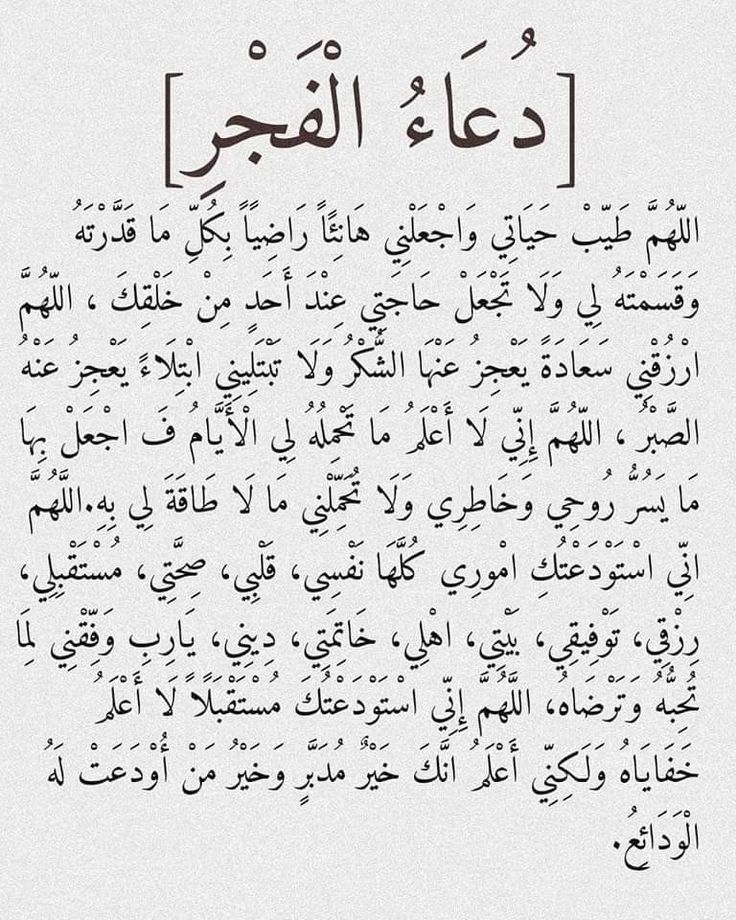 [دُعَاءُ الْفَجْرِ]
اللّهُمَّ طَيّبْ حَيَاتِي وَاجْعَلْنِي هَانِئًاً رَاضِيَاً بِكُلِّ مَا قَدَّرْتَهُ
وَقَسَمْتَهُ لِي وَلَا تَجْعَلْ حَاجَتِي عِنْدَ أَحَدٍ مِنْ خَلْقِكَ ، اللّهُمَّ
ارْزُقْنِي سَعَادَةً يَعْجِزُ عَنْهَا الشُّكْرُ وَلَا تَبْتَلِينِي ابْتِلَاءً يَعْجِزُ عَنْهُ
الصَّبْرُ ، اللّهُمَّ إِنِّي لَا أَعْلَمُ مَا تَحْمِلُهُ لِي الْأَيَّامُ فَ اجْعَلْ بِهَا
مَا يَسُرُّ رُوحِي وَخَاطِرِي وَلَا تُحَمِّلْنِي مَا لَا طَاقَةَ لِي بِهِ.اللَّهُمَّ
انِّي اسْتَوْدَعْتُكِ امْورِي كُلَّهَا نَفْسِي، قَلْبِي، صِحَّتِي، مُسْتَقْبِلِي،
رِزْقِي، تَوْفِيقِي، بَيْتِي، اهْلِي، خَاتِمَتِي، دِينِي، يَارِبِ وَفِّقْنِي لِمَا
تُحِبُّهُ وَتَرْضَاهُ، اللَّهُمَّ إِنِّي اسْتَوْدَعْتُكَ مُسْتَقْبَلًاً لَا أَعْلَمُ
خَفَايَاهُ وَلَكِنِّي أَعْلَمُ انَّكَ خَيْرٌ مُدَبَّرٍ وَخَيْرُ مَنْ أُوْدَعَتْ لَهُ
الْوَدَائِعُ.